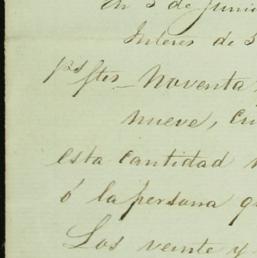 En 5 de Junio
Interes de 5
p.s ftes. Noventa
nueve, cu
esta cantidad
ó la persona q
Los veinte y